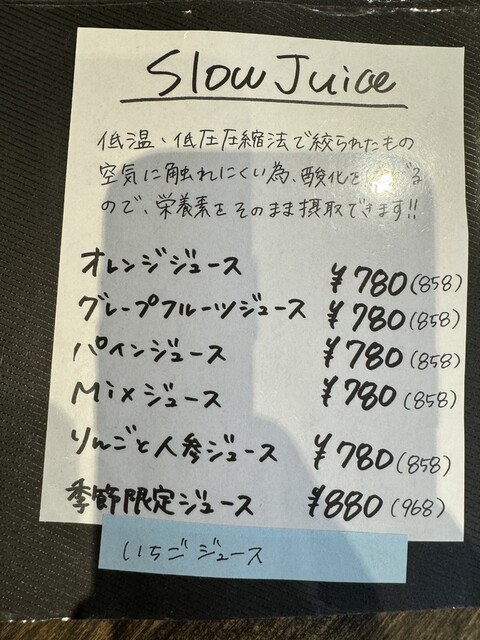 Slow Juice
低温、低圧圧縮法で絞られたもの
空気に触れにくい為、酸化を げる
ので、栄養素をそのまま摂取できます!!
オレンジジュース ¥780(858)
グレープフルーツジュース ¥780(858)
パインジュース ¥780(858)
Mixジュース ¥780(858)
りんごと人参ジュース ¥780(858)
季節限定ジュース ¥880(968)
いちごジュース